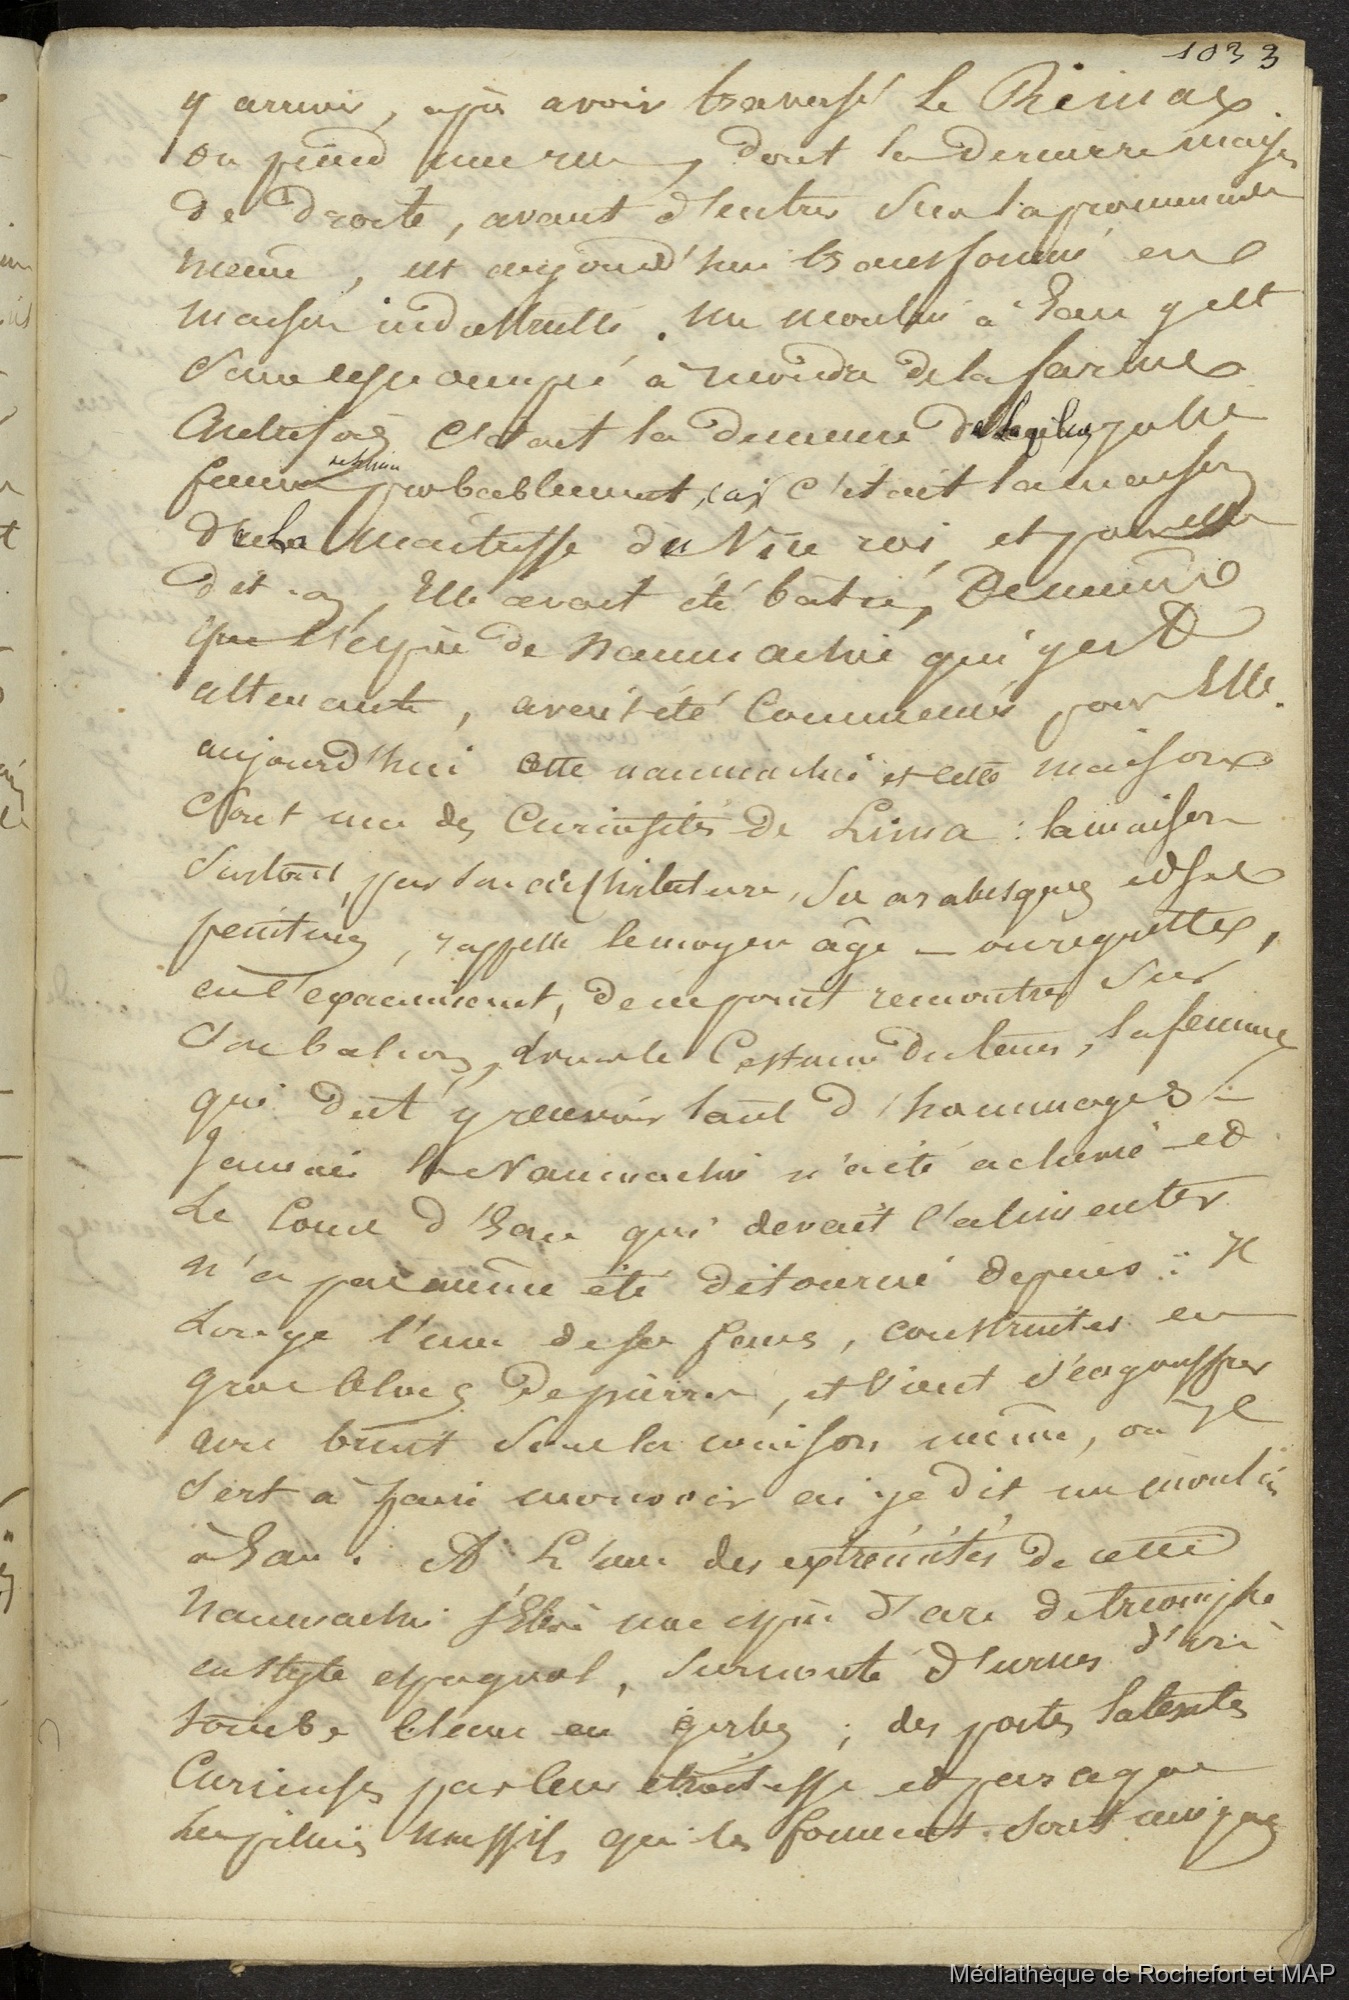 1033
y arriver, après avoir traversé le Rimac
on prend une rue, dont la dernière maison
de droite, avant d'entrer sur la promenade
même, est aujourd'hui transformé en
maison industrielle. un moulin à Eau y est
sans cesse occupé à moudre de la farine
Autrefois c'était la demeure de jolie
femme probablement, car c'était la maison
de la maitresse du Vice roi, et pour elle
dit-on, Elle avait été batie, De même
que l'espèce de naumachie qui y est
attenante, avait été Commencée pour Elle.
aujourd'hui cette naumachie et cette maison
sont une des Curiosités de Lima : la maison
surtout, par son architecture, ses arabesques et ses
peintures, rappelle le moyen âge — on regrette,
en l'examinant, de ne point rencontrer sur
son balcon, dans le Costume du tems, la femme
qui dut y recevoir tant d'hommages —
Jamais la Naumachie n'a été achevé — et
Le Cours d'Eau qui devait l'alimenter
n'a pas même été détourné depuis : Il
Longe l'une de ses faces, construites en
gros blocs de pierres, et vient s'engouffrer
avec bruit sous la maison même, où Il
sert à faire mouvoir ai-je dit un moulin
à Eau. A L'une des extrémités de cette
Naumachie s'Elève une espèce d'arc de triomphe
en style espagnol, surmonté d'urnes d'où
tombe l'eau en gerbes ; des portes latérales
Curieuses par leur étroitesse et parce que
les piliers massifs qui les forment sont
Médiathèque de Rochefort et MAP